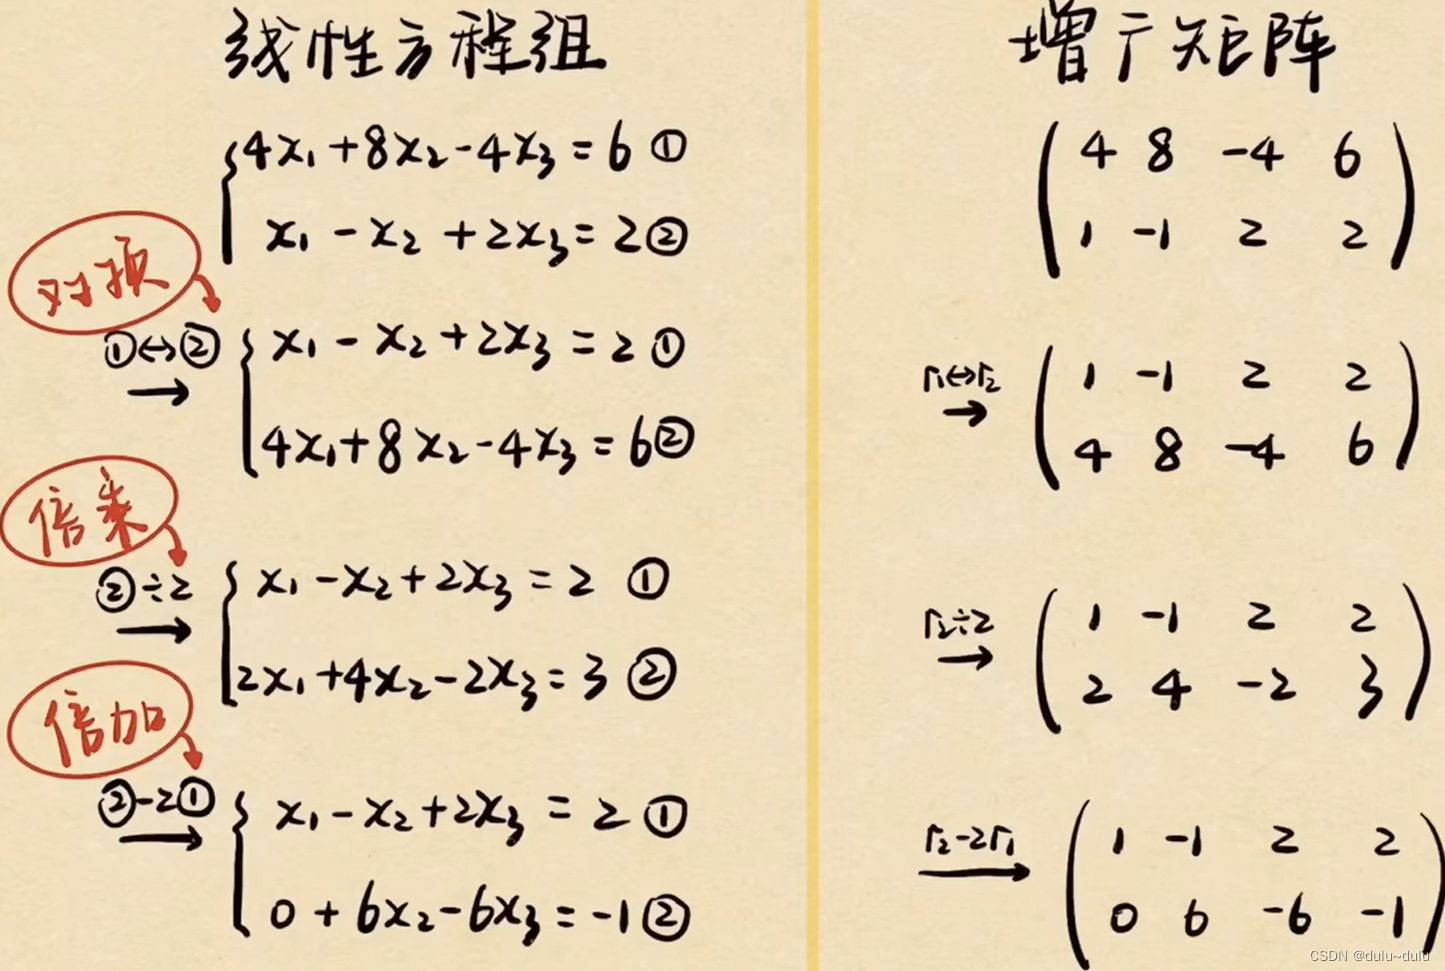 线性方程组
4x₁+8x₂-4x₃=6 ①
x₁-x₂+2x₃=2 ②
对换
①↔②
→
x₁-x₂+2x₃=2 ①
4x₁+8x₂-4x₃=6 ②
倍乘
②÷2
→
x₁-x₂+2x₃=2 ①
2x₁+4x₂-2x₃=3 ②
倍加
②-2①
→
x₁-x₂+2x₃=2 ①
0+6x₂-6x₃=-1 ②
增广矩阵
4 8 -4 6
1 -1 2 2
r₁↔r₂
→
1 -1 2 2
4 8 -4 6
r₂÷2
→
1 -1 2 2
2 4 -2 3
r₂-2r₁
→
1 -1 2 2
0 6 -6 -1
CSDN @dulu~dulu